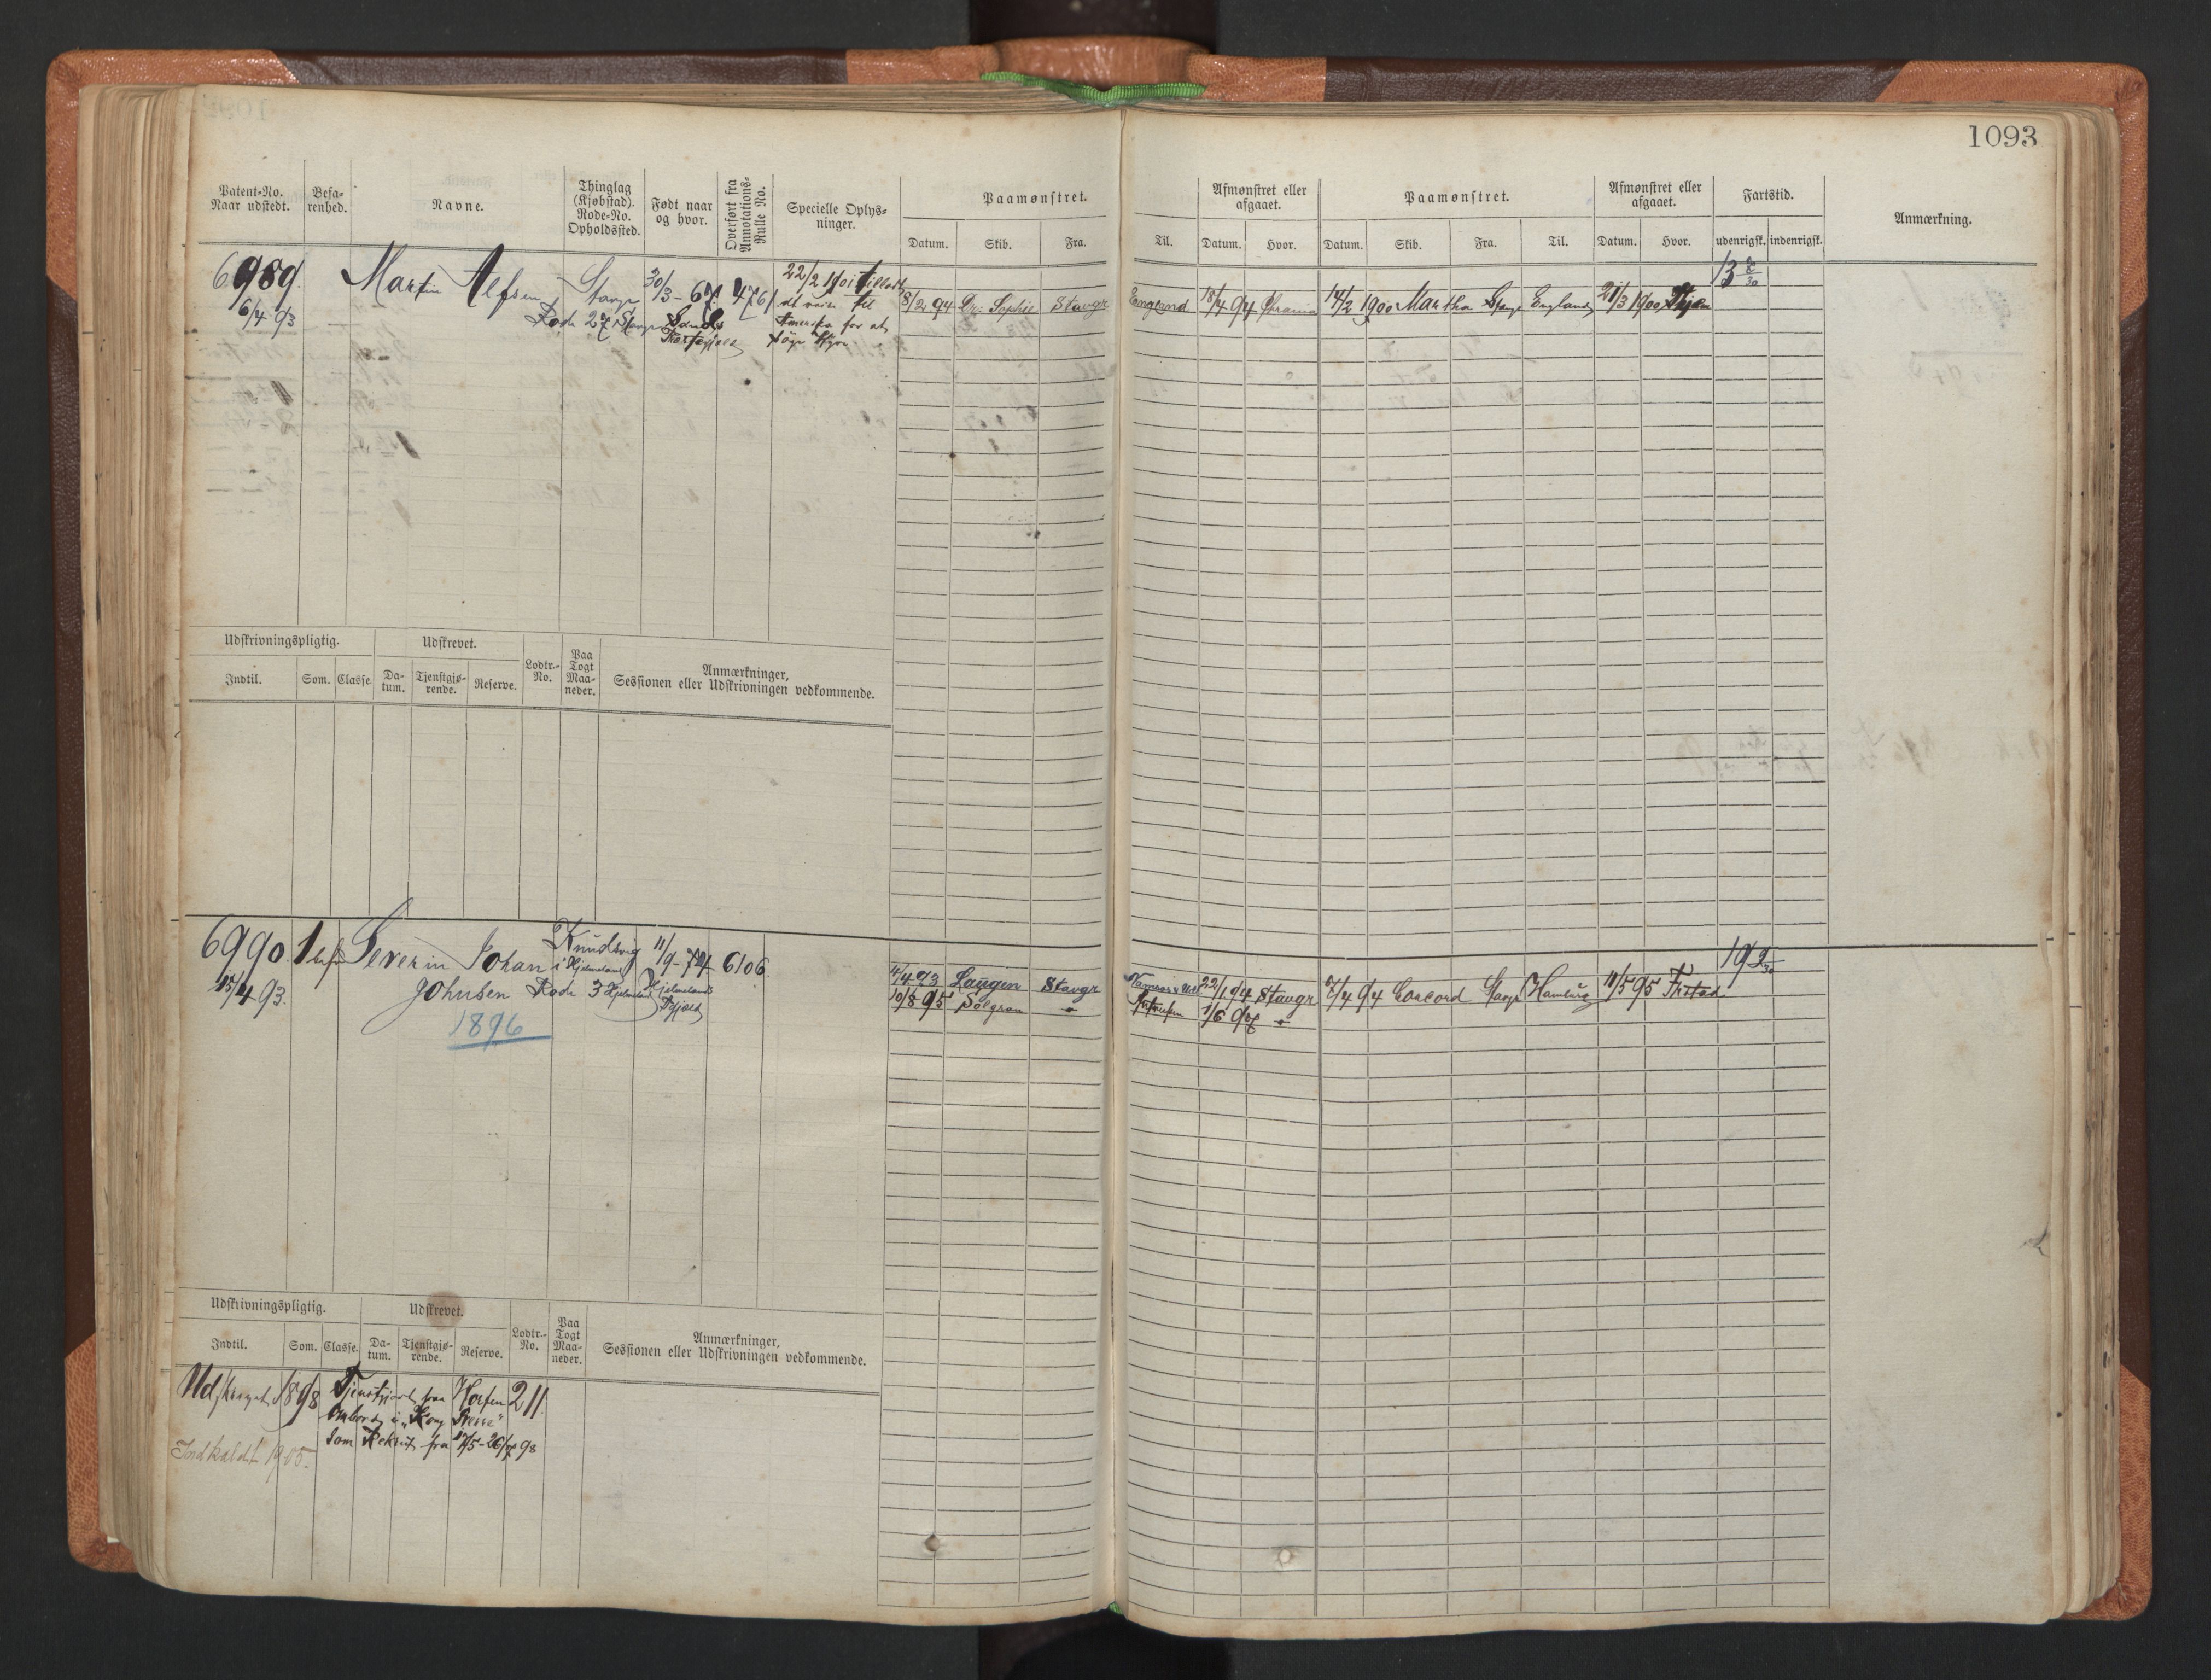 1093
Patent-No. Naar udstedt. Befa-renhed. Navne. Thinglag (Kjøbstad). Rode-No. Opholdssted. Født naar og hvor. Overført fra Annotations-Rulle No. Specielle Oplys-ninger. Paamønstret. Afmønstret eller afgaaet. Paamønstret. Afmønstret eller afgaaet. Fartstid. Anmærkning.
Datum. Skib. Fra. Til. Datum. Hvor. Datum. Skib. Fra. Til. Datum. Hvor. udenrigsk. indenrigsk.
6989 Martin Alfsen Stavgr 30/3-67 4761 22/2 1901 tilladt 13
6/4 93 Rode 27 Stavgr at reise til 8/2 94 Sophie Stavgr England 18/4 94 14/2 1900 Martha Stavgr England 21/3 1900
Amerika for at
søge Hyre
Udskrivningspligtig. Udskrevet. Lodtr.-No. Paa Togt Maa-neder. Anmærkninger, Sessionen eller Udskrivningen vedkommende.
Indtil. Som. Classe. Da-tum. Tjenstgjø-rende. Reserve.
6990 1 bef Severin Johan Knudsvig 11/9-74 6106 19
15/4 93 Johnsen i Hjelmeland Rode 3 Hjelmeland Hjelmelands 4/4 93 Laugen Stavgr 22/1 94 Stavgr 7/4 94 Concord Stavgr Hamburg 11/5 95 Frstad
10/8 95 Solgran 1/6
1896
Udskrivningspligtig. Udskrevet. Lodtr.-No. Paa Togt Maa-neder. Anmærkninger, Sessionen eller Udskrivningen vedkommende.
Indtil. Som. Classe. Da-tum. Tjenstgjø-rende. Reserve.
Udskrevet 1898 Tjenstgjort fra Horten 211
Ombord i "Kong Sverre"
som Rekrut fra 17/5-26/7 98
Indkaldt 1905.